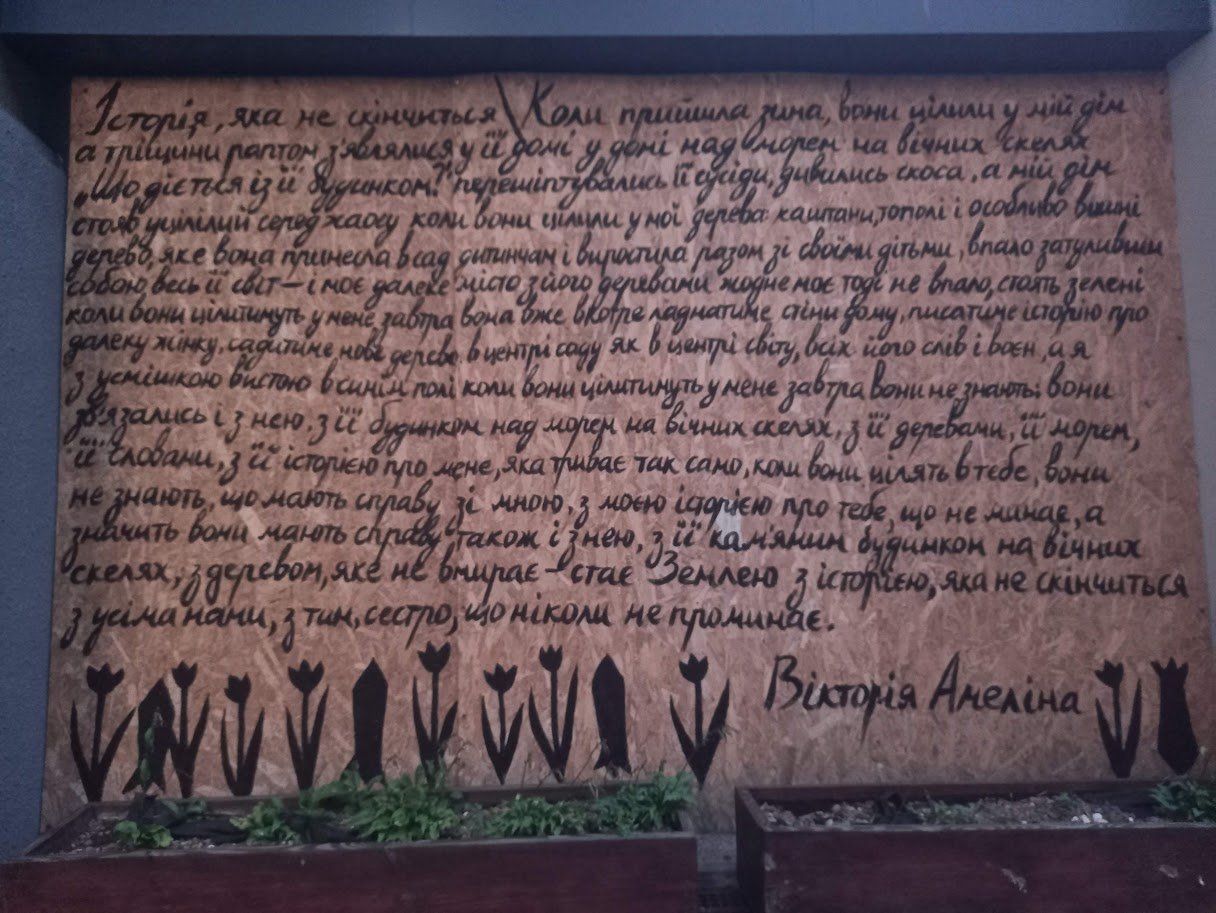 Історія, яка не скінчиться \ Коли прийшла зима, вони цілили у мій дім
а тріщини раптом з'являлися у її домі у домі над морем на вічних скелях
„Що діється із її будинком?" перешіптувались її сусіди, дивились скоса, а мій дім
стояв уцілілий серед хаосу коли вони цілили у мої дерева: каштани, тополі і особливо вишні
дерево, яке вона принесла в сад дитинчам і виростила разом зі своїми дітьми, впало затуливши
собою весь її світ – і моє далеке місто з його деревами жодне моє тоді не впало, стоять зелені
коли вони цілитимуть у мене завтра вона вже вкотре ладнатиме стіни дому, писатиме історію про
далеку жінку, садитиме нове дерево в центрі саду як в центрі світу, всіх його слів і воєн, а я
з усмішкою вистою в синім полі коли вони цілитимуть у мене завтра вони не знають: вони
зв'язались і з нею, з її будинком над морем на вічних скелях, з її деревами, її морем,
її словами, з її історією про мене, яка триває так само, коли вони цілять в тебе, вони
не знають, що мають справу зі мною, з моєю історією про тебе, що не минає, а
значить вони мають справу також і з нею, з її кам'яним будинком на вічних
скелях, з деревом, яке не вмирає – стає Землею з історією, яка не скінчиться
з усіма нами, з тим, сестро, що ніколи не проминає.
Вікторія Амеліна